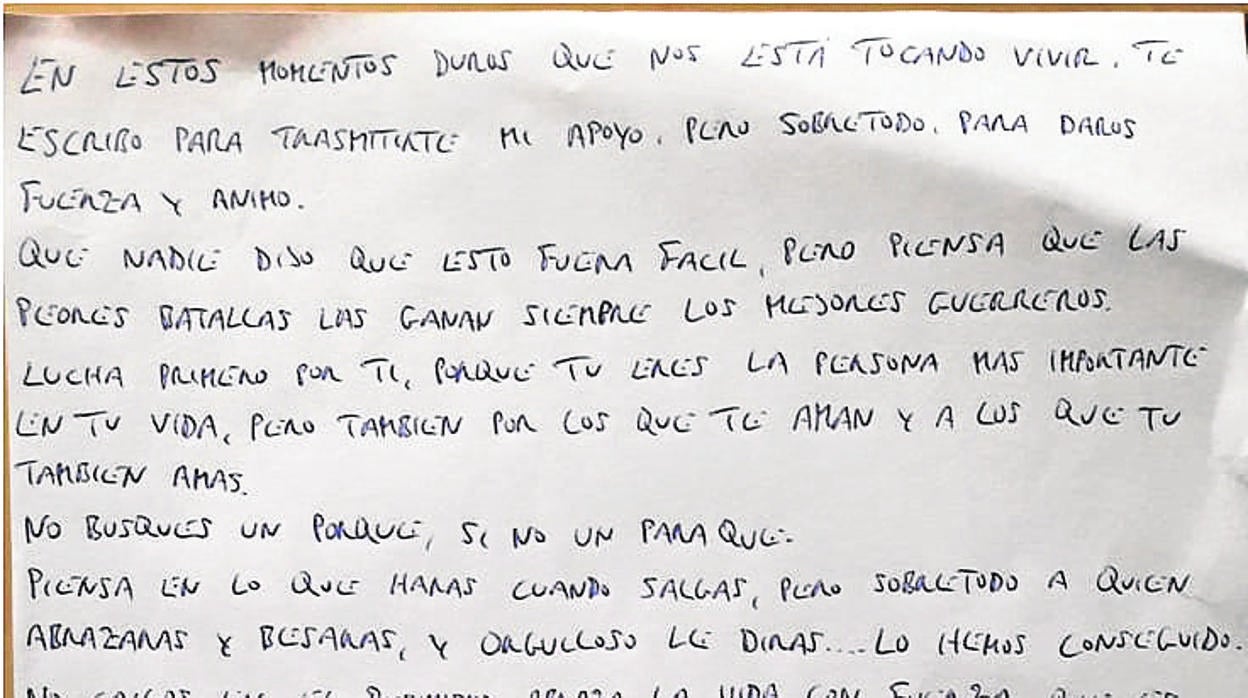 EN ESTOS MOMENTOS DUROS QUE NOS ESTÁ TOCANDO VIVIR. TE
ESCRIBO PARA TRASMITIRTE MI APOYO. PERO SOBRETODO. PARA DAROS
FUERZA Y ANIMO.
QUE NADIE DIJO QUE ESTO FUERA FACIL, PERO PIENSA QUE LAS
PEORES BATALLAS LAS GANAN SIEMPRE LOS MEJORES GUERREROS.
LUCHA PRIMERO POR TI, PORQUE TU ERES LA PERSONA MAS IMPORTANTE
EN TU VIDA, PERO TAMBIEN POR LOS QUE TE AMAN Y A LOS QUE TU
TAMBIEN AMAS.
NO BUSQUES UN PORQUE, SI NO UN PARA QUE.
PIENSA EN LO QUE HARAS CUANDO SALGAS, PERO SOBRETODO A QUIEN
ABRAZARAS Y BESARAS, Y ORGULLOSO LE DIRAS....LO HEMOS CONSEGUIDO.
NO CAIGAS EN EL ABRAZA LA VIDA CON FUERZA QUE